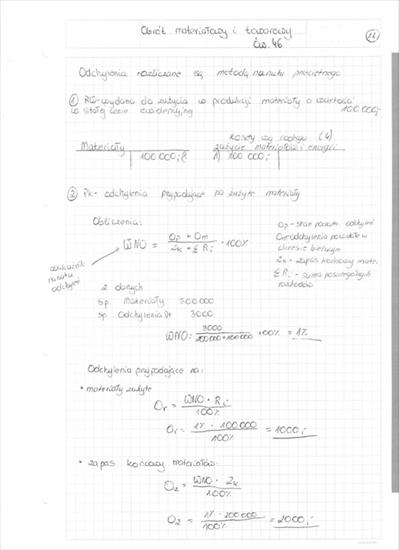 Obrót materiałowy i towarowy
ćw. 46
16
Odchylenia rozliczane są metodą narzutu przeciętnego
① RW-wydano do zużycia w produkcji materiały o wartości
w stałej cenie ewidencyjnej 100 000,-
Koszty wg rodzaju (4)
Materiały zużycie materiałów i energii
100 000,- (1 1) 100 000,-
② Pk- odchylenia przypadające na zużyte materiały
Obliczenia:
WNO = Op + Om / Zk + Σ Ri · 100%
wskaźnik
narzutu
odchyleń
Op - stan początk. odchyleń
Om odchylenia powstałe w
okresie bieżącym
Zk - zapas końcowy mater.
Σ Ri - suma poszczególnych
rozchodów
z danych
Sp. Materiały 300 000
Sp Odchylenia 3000
WNO: 3000 / 200 000 + 100 000 · 100% = 1%
Odchylenia przypadające na:
• materiały zużyte
Or = WNO · Ri / 100%
Or = 1% · 100 000 / 100% = 1000,-
• zapas końcowy materiałów:
Oz = WNO · Zk / 100%
Oz = 1% · 200 000 / 100% = 2000,-